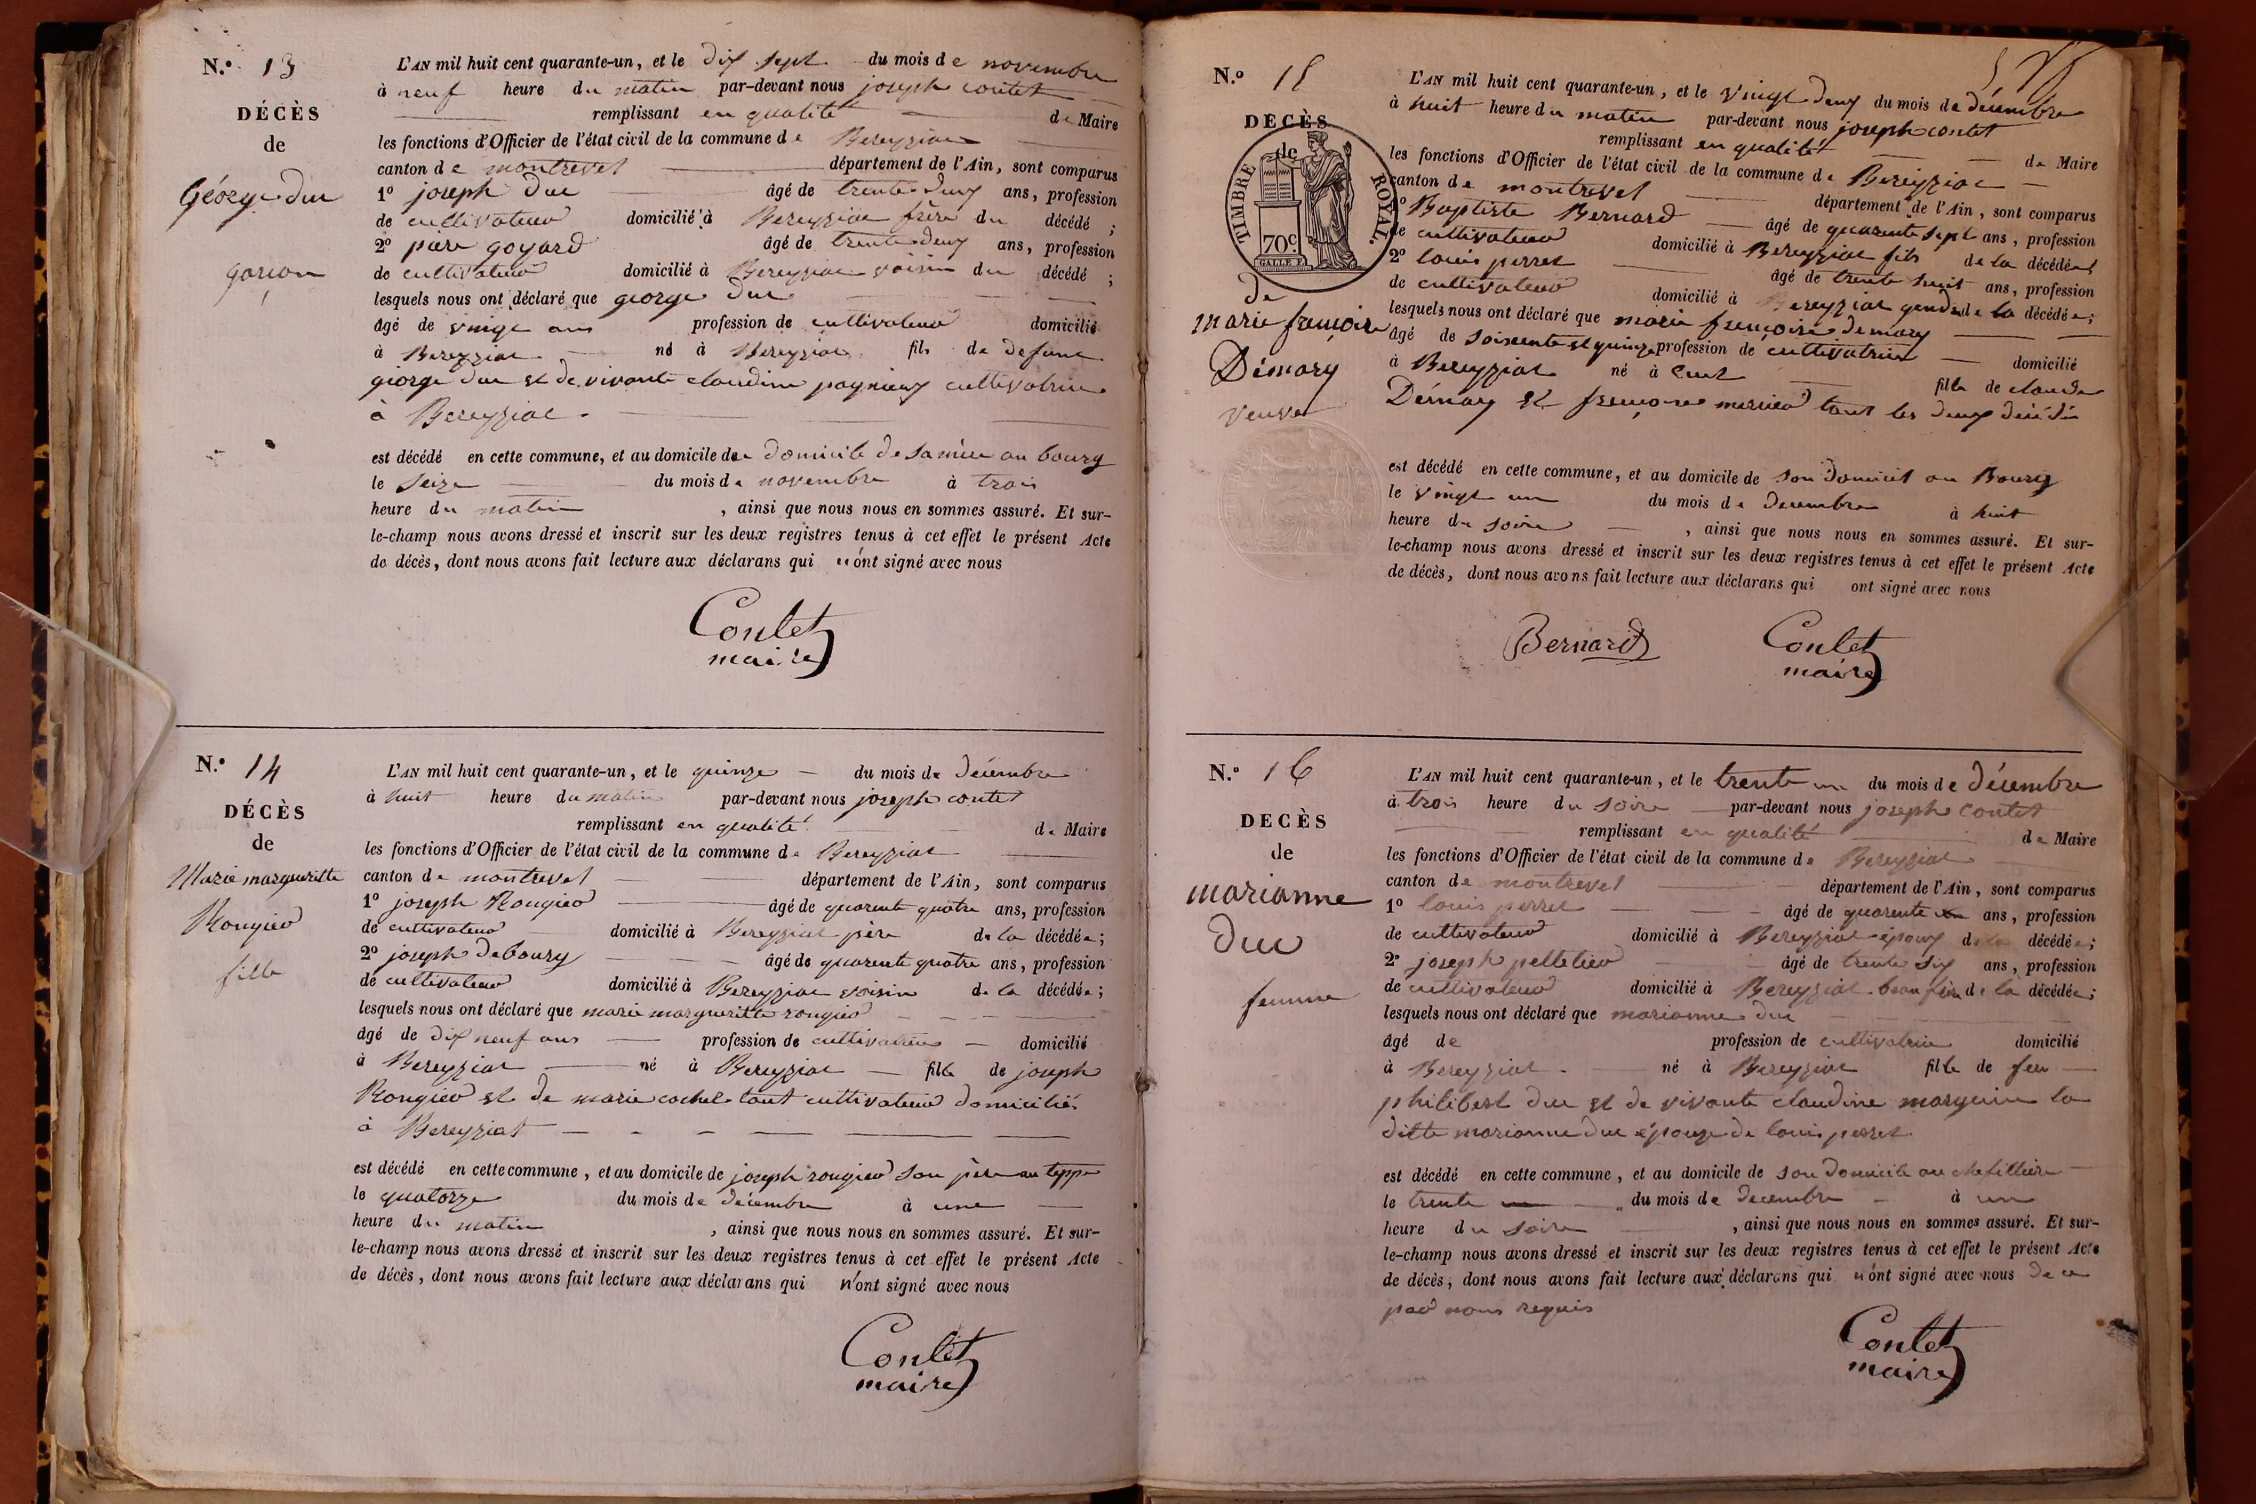 N.º 13
DÉCÈS
de
Géorge duc
garçon
L'AN mil huit cent quarante-un, et le dix sept du mois de novembre
à neuf heure du matin par-devant nous joseph contet
remplissant en qualité de Maire
les fonctions d'Officier de l'état civil de la commune de Bereyziat
canton de montrevel département de l'Ain, sont comparus
1º joseph duc âgé de trente deux ans, profession
de cultivateur domicilié à Bereyziat frère du décédé ;
2º piere goyard âgé de trente deux ans, profession
de cultivateur domicilié à Bereyziat voisin du décédé ;
lesquels nous ont déclaré que george duc
âgé de vingt ans profession de cultivateur domicilié
à Bereyziat né à Bereyziat fils de defunt
giorge duc et de vivante claudine pagnieux cultivatrice
à Bereyziat.
est décédé en cette commune, et au domicile de domicile de sa mère au bourg
le seize du mois de novembre à trois
heure du matin , ainsi que nous nous en sommes assuré. Et sur-
le-champ nous avons dressé et inscrit sur les deux registres tenus à cet effet le présent Acte
de décès, dont nous avons fait lecture aux déclarans qui n'ont signé avec nous
Contet
maire
N.º 14
DÉCÈS
de
Marie margueritte
Rougier
fille
L'AN mil huit cent quarante-un, et le quinze du mois de décembre
à huit heure du matin par-devant nous joseph contet
remplissant en qualité de Maire
les fonctions d'Officier de l'état civil de la commune de Bereyziat
canton de montrevel département de l'Ain, sont comparus
1º joseph Rougier âgé de quarente quatre ans, profession
de cultivateur domicilié à Bereyziat père de la décédée ;
2º joseph debourg âgé de quarente quatre ans, profession
de cultivateur domicilié à Bereyziat voisin de la décédée ;
lesquels nous ont déclaré que marie margueritte rougier
âgé de dix neuf ans profession de cultivatrice domicilié
à Bereyziat né à Bereyziat fille de joseph
Rougier et de marie cochet tout cultivateur domiciliés
à Bereyziat
est décédé en cette commune, et au domicile de joseph rougier son père au teppe
le quatorze du mois de décembre à une
heure du matin , ainsi que nous nous en sommes assuré. Et sur-
le-champ nous avons dressé et inscrit sur les deux registres tenus à cet effet le présent Acte
de décès, dont nous avons fait lecture aux déclarans qui n'ont signé avec nous
Contet
maire
N.º 15
DECÈS
de
TIMBRE ROYAL.
70c.
GALLE F.
de
marie françoise
Démary
veuve
L'AN mil huit cent quarante-un, et le vingt deux du mois de décembre
à huit heure du matin par-devant nous joseph contet
remplissant en qualité de Maire
les fonctions d'Officier de l'état civil de la commune de Bereyziat
canton de montrevel département de l'Ain, sont comparus
1º Baptiste Bernard âgé de quarente sept ans, profession
de cultivateur domicilié à Bereyziat fils de la décédée ;
2º louis perret âgé de trente huit ans, profession
de cultivateur domicilié à Bereyziat gendre de la décédée ;
lesquels nous ont déclaré que marie françoise demary
âgé de soixente et quinze profession de cultivatrice domicilié
à Bereyziat né à Curt fille de claude
Démary et françoise mercier tout les deux décédés
est décédé en cette commune, et au domicile de son domicil au Bourg
le vingt un du mois de decembre à huit
heure du soire , ainsi que nous nous en sommes assuré. Et sur-
le-champ nous avons dressé et inscrit sur les deux registres tenus à cet effet le présent Acte
de décès, dont nous avons fait lecture aux déclarans qui ont signé avec nous
Bernard Contet
maire
N.º 16
DECÈS
de
marianne
duc
femme
L'AN mil huit cent quarante-un, et le trente un du mois de décembre
à trois heure du soire par-devant nous joseph Contet
remplissant en qualité de Maire
les fonctions d'Officier de l'état civil de la commune de Bereyziat
canton de montrevel département de l'Ain, sont comparus
1º louis perret âgé de quarente ans, profession
de cultivateur domicilié à Bereyziat époux de la décédée ;
2º joseph pelletier âgé de trente six ans, profession
de cultivateur domicilié à Bereyziat beau frère de la décédée ;
lesquels nous ont déclaré que marianne duc
âgé de profession de cultivatrice domicilié
à Bereyziat né à Bereyziat fille de feu
philibert duc et de vivante claudine marguin la
ditte marianne duc épouze de louis perret
est décédé en cette commune, et au domicile de son domicile au
le trente du mois de decembre à un
heure du soire , ainsi que nous nous en sommes assuré. Et sur-
le-champ nous avons dressé et inscrit sur les deux registres tenus à cet effet le présent Acte
de décès, dont nous avons fait lecture aux déclarans qui n'ont signé avec nous de ce
par nous requis
Contet
maire